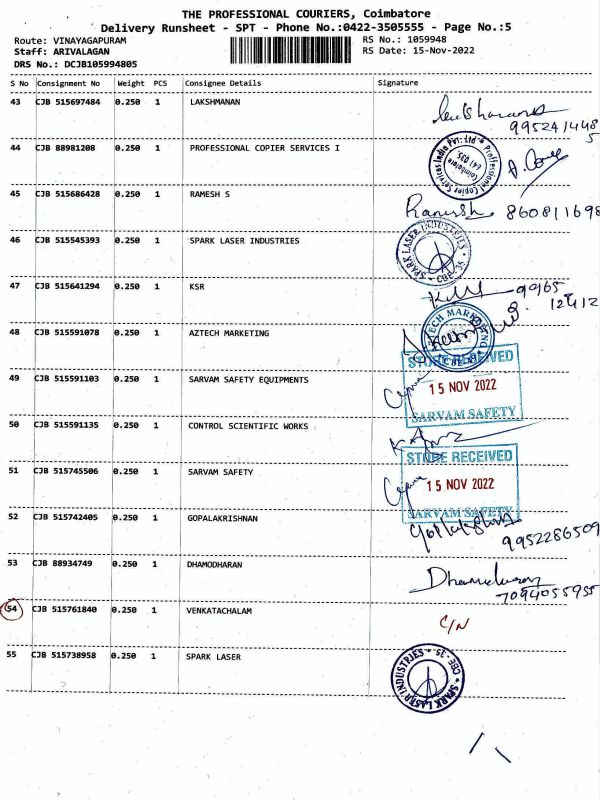 THE PROFESSIONAL COURIERS, Coimbatore
Delivery Runsheet - SPT - Phone No.:0422-3505555 - Page No.:5
Route: VINAYAGAPURAM RS No.: 1059948
Staff: ARIVALAGAN RS Date: 15-Nov-2022
DRS No.: DCJB105994805
S No Consignment No Weight PCS Consignee Details Signature
43 CJB 515697484 0.250 1 LAKSHMANAN
9952414485
44 CJB 88981208 0.250 1 PROFESSIONAL COPIER SERVICES I
Professional Copier Services India Pvt. Ltd
Coimbatore
641 035.
45 CJB 515686428 0.250 1 RAMESH S
Ramesh 860811698
46 CJB 515545393 0.250 1 SPARK LASER INDUSTRIES
SPARK LASER INDUSTRIES CBE-35
47 CJB 515641294 0.250 1 KSR
99165
12412
48 CJB 515591078 0.250 1 AZTECH MARKETING
AZTECH MARKETING
49 CJB 515591103 0.250 1 SARVAM SAFETY EQUIPMENTS
STORE RECEIVED
15 NOV 2022
SARVAM SAFETY
50 CJB 515591135 0.250 1 CONTROL SCIENTIFIC WORKS
51 CJB 515745506 0.250 1 SARVAM SAFETY
STORE RECEIVED
15 NOV 2022
SARVAM SAFETY
52 CJB 515742405 0.250 1 GOPALAKRISHNAN
9952286509
53 CJB 88934749 0.250 1 DHAMODHARAN
Dhamodharan
7094055955
54 CJB 515761840 0.250 1 VENKATACHALAM C/N
55 CJB 515738958 0.250 1 SPARK LASER
SPARK LASER INDUSTRIES CBE-35